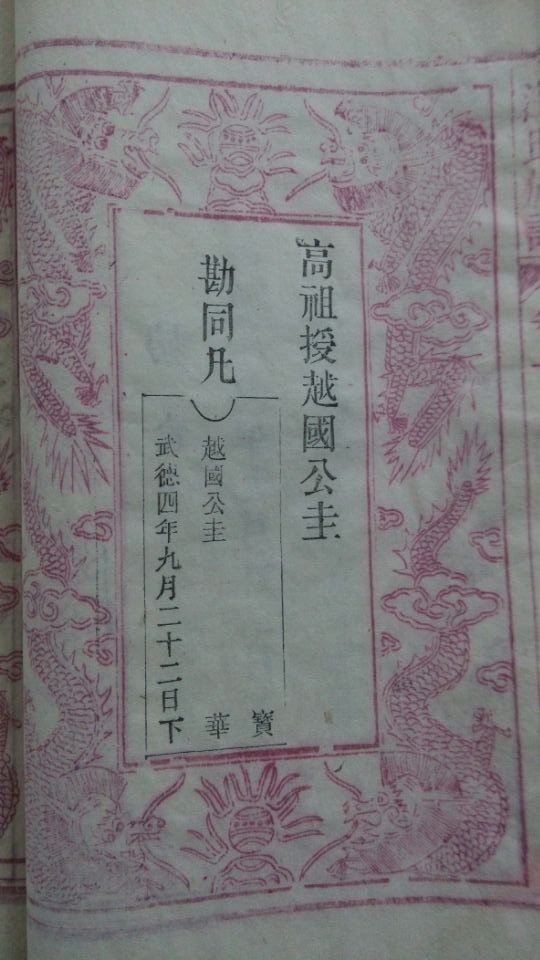 高祖授越國公圭
勘同凡
越國公圭
武德四年九月二十二日下
寶華